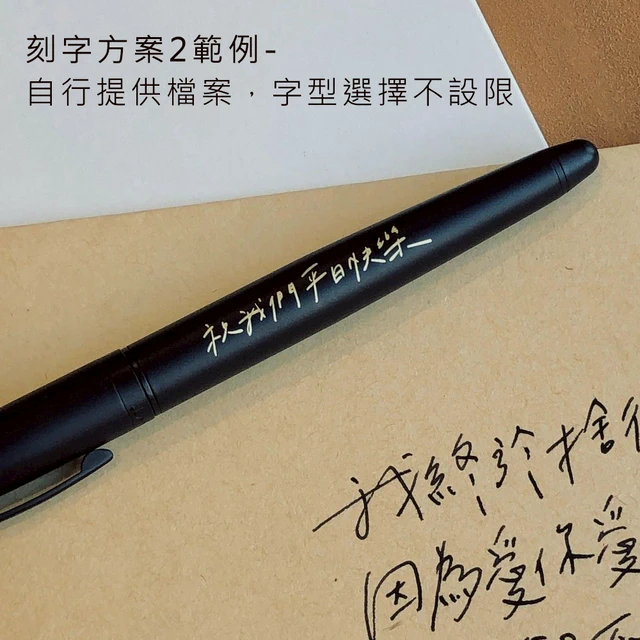 刻字方案2範例-
自行提供檔案，字型選擇不設限
祝我們平日快樂
我終於捨得
因為愛你愛